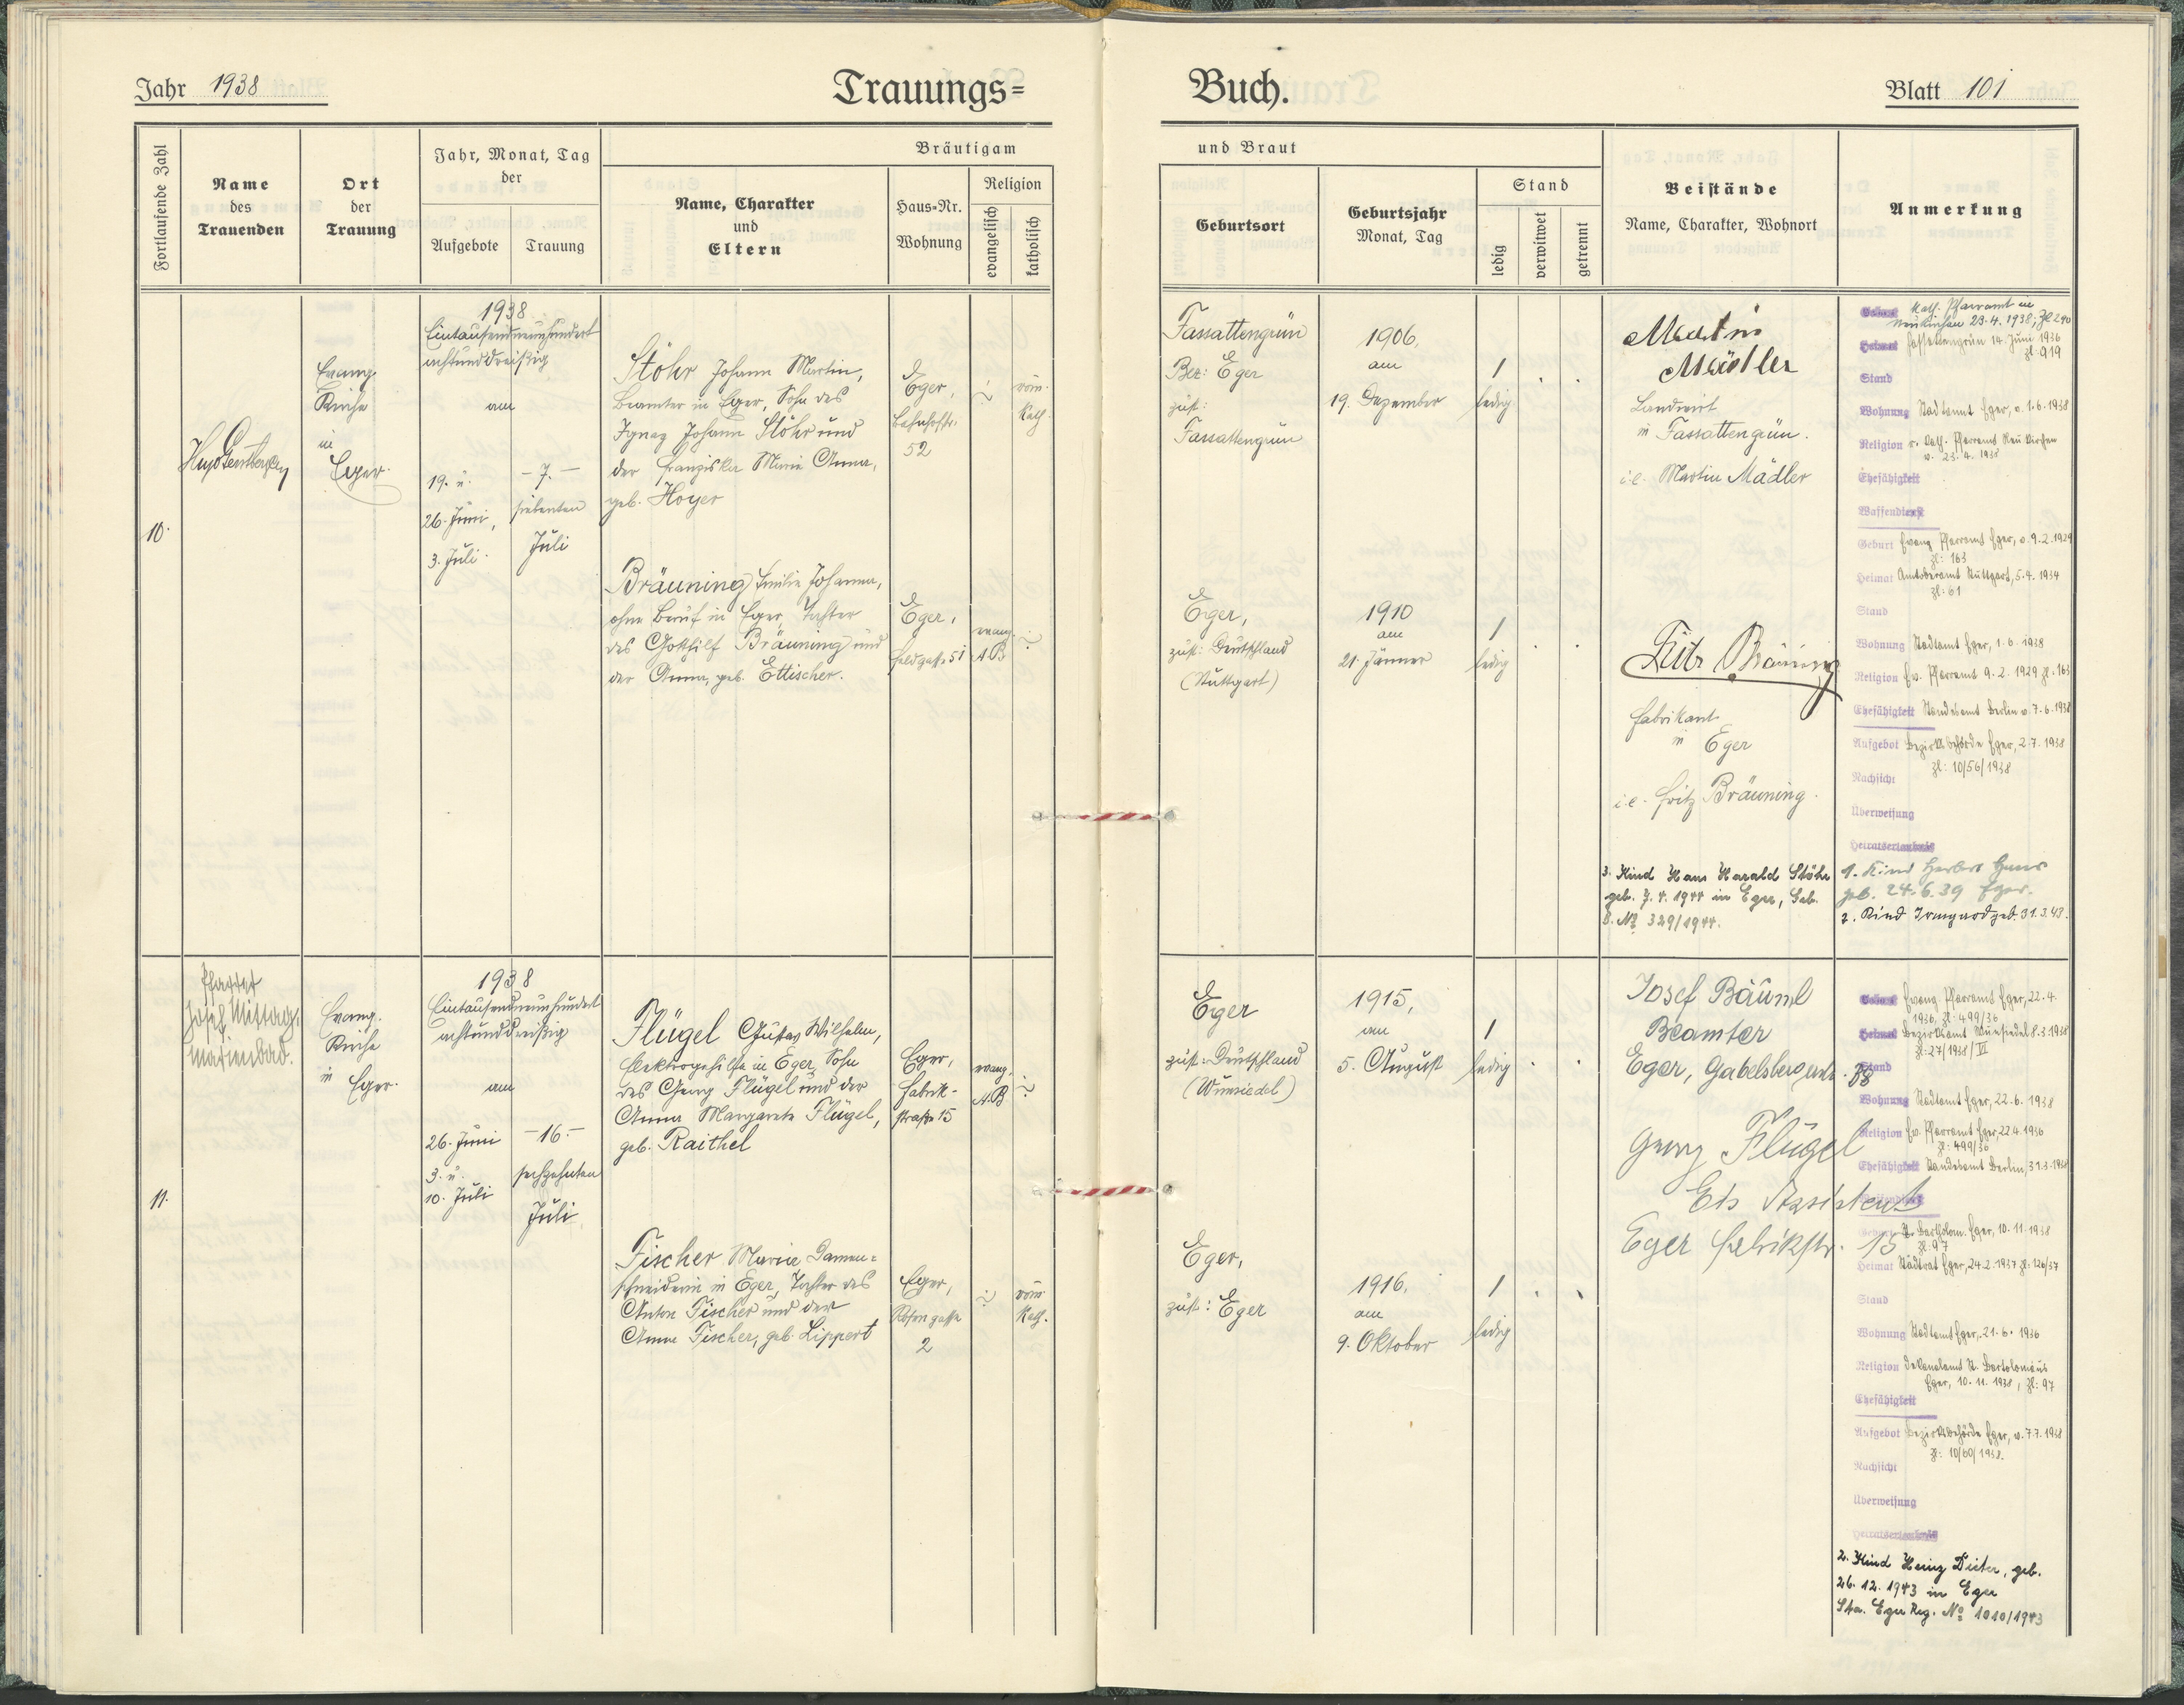 Jahr 1938
Trauungs=
Buch.
Blatt 101
Fortlaufende Zahl
Name
des
Trauenden
Ort
der
Trauung
Jahr, Monat, Tag
der
Aufgebote
Trauung
Bräutigam
Name, Charakter
und
Eltern
Haus=Nr.
Wohnung
Religion
evangelisch
katholisch
und Braut
Geburtsort
Geburtsjahr
Monat, Tag
Stand
ledig
verwitwet
getrennt
Beistände
Name, Charakter, Wohnort
Anmerkung
10.
Evang.
Kirche
in
Eger.
1938
Eintausendneunhundert
achtunddreißig
am
19. u.
26. Juni,
3. Juli.
- 7. -
siebenten
Juli
Stöhr Johann Martin,
Beamter in Eger, Sohn des
Ignaz Johann Stöhr und
der Franziska Maria Anna,
geb. Hoyer
Eger,
Bahnhofstr.
52
röm.
kath.
Fassattengrün
Bez: Eger
zust:
Fassattengrün
1906,
am
19. Dezember
1
ledig
Martin
Mädler
Landwirt
in Fassattengrün.
i.e. Martin Mädler
Bräuning Emilie Johanna,
ohne Beruf in Eger, Tochter
des Gotthilf Bräuning und
der Anna, geb. Ettischer.
Eger,
Feldgasse 51
evang.
A.B
Eger,
zust: Deutschland
(Stuttgart)
1910
am
21. Jänner
1
ledig
Fritz Bräuning
Fabrikant
in Eger
i.e. Fritz Bräuning.
3. Kind Hans Harald Stöhr
geb. 7.4.1944 in Eger, Geb.
B. No 329/1944.
kath. Pfarramt in
Neukirchen 23.4.1938, Zl 240
Heimat Fassattengrün 14. Juni 1936
Zl. 919
Stand
Wohnung Stadtamt Eger, v. 1.6.1938
Religion r. kath. Pfarramt Neukirchen
v. 23.4.1938
Ehefähigkeit
Waffendienst
Geburt Evang. Pfarramt Eger, v. 9.2.1929
Zl: 163
Heimat Amtsoberamt Stuttgart, 5.4.1934
Zl: 61
Stand
Wohnung Stadtamt Eger, 1.6.1938
Religion Ev. Pfarramt 9.2.1929 Zl: 163
Ehefähigkeit Standesamt Berlin v. 7.6.1938
Aufgebot Bezirksbehörde Eger, 2.7.1938
Zl: 10/56/1938
Nachsicht
Überweisung
Heiratserlaubnis
1. Kind Herbert Hans
geb. 24.6.39 Eger.
2. Kind Irmgard geb. 31.3.43.
11.
Pfarrer
Josef Mittag,
Marienbad.
Evang.
Kirche
in
Eger.
1938
Eintausendneunhundert
achtunddreißig
am
26. Juni
3. u.
10. Juli
- 16. -
sechzehnten
Juli
Flügel Gustav Wilhelm,
Elektrogehilfe in Eger, Sohn
des Georg Flügel und der
Anna Margareta Flügel,
geb. Raithel
Eger,
Fabrik-
straße 15
evang.
A.B
Eger
zust: Deutschland
(Wunsiedel)
1915,
am
5. August
1
ledig
Josef Bäuml
Beamter
Eger, Gabelsbergerstr. 38
Georg Flügel
Eis Assistent
Eger Fabrikstr. 15
Fischer Maria Damen=
schneiderin in Eger, Tochter des
Anton Fischer und der
Anna Fischer, geb. Lippert
Eger,
Rosengasse
2
röm.
kath.
Eger,
zust: Eger
1916,
am
9. Oktober
1
ledig
Evang. Pfarramt Eger, 22.4.
1936, Zl: 499/36
Heimat Bezirksamt Wunsiedel 8.3.1938
Zl: 27/1938/VI
Stand
Wohnung Stadtamt Eger, 22.6.1938
Religion Ev. Pfarramt Eger, 22.4.1936
Zl: 499/36
Ehefähigkeit Standesamt Berlin, 31.3.1938
Waffendienst
Geburt St. Bartholom. Eger, 10.11.1938
Zl: 97
Heimat Stadtrat Eger, 24.2.1937 Zl: 126/37
Stand
Wohnung Stadtamt Eger, 21.6.1936
Religion Dekanalamt St. Bartolomäus
Eger, 10.11.1938, Zl: 97
Ehefähigkeit
Aufgebot Bezirksbehörde Eger, v. 7.7.1938
Zl: 10/60/1938.
Nachsicht
Überweisung
Heiratserlaubnis
2. Kind Heinz Dieter, geb.
26.12.1943 in Eger
Sta. Eger Reg. No 1010/1943